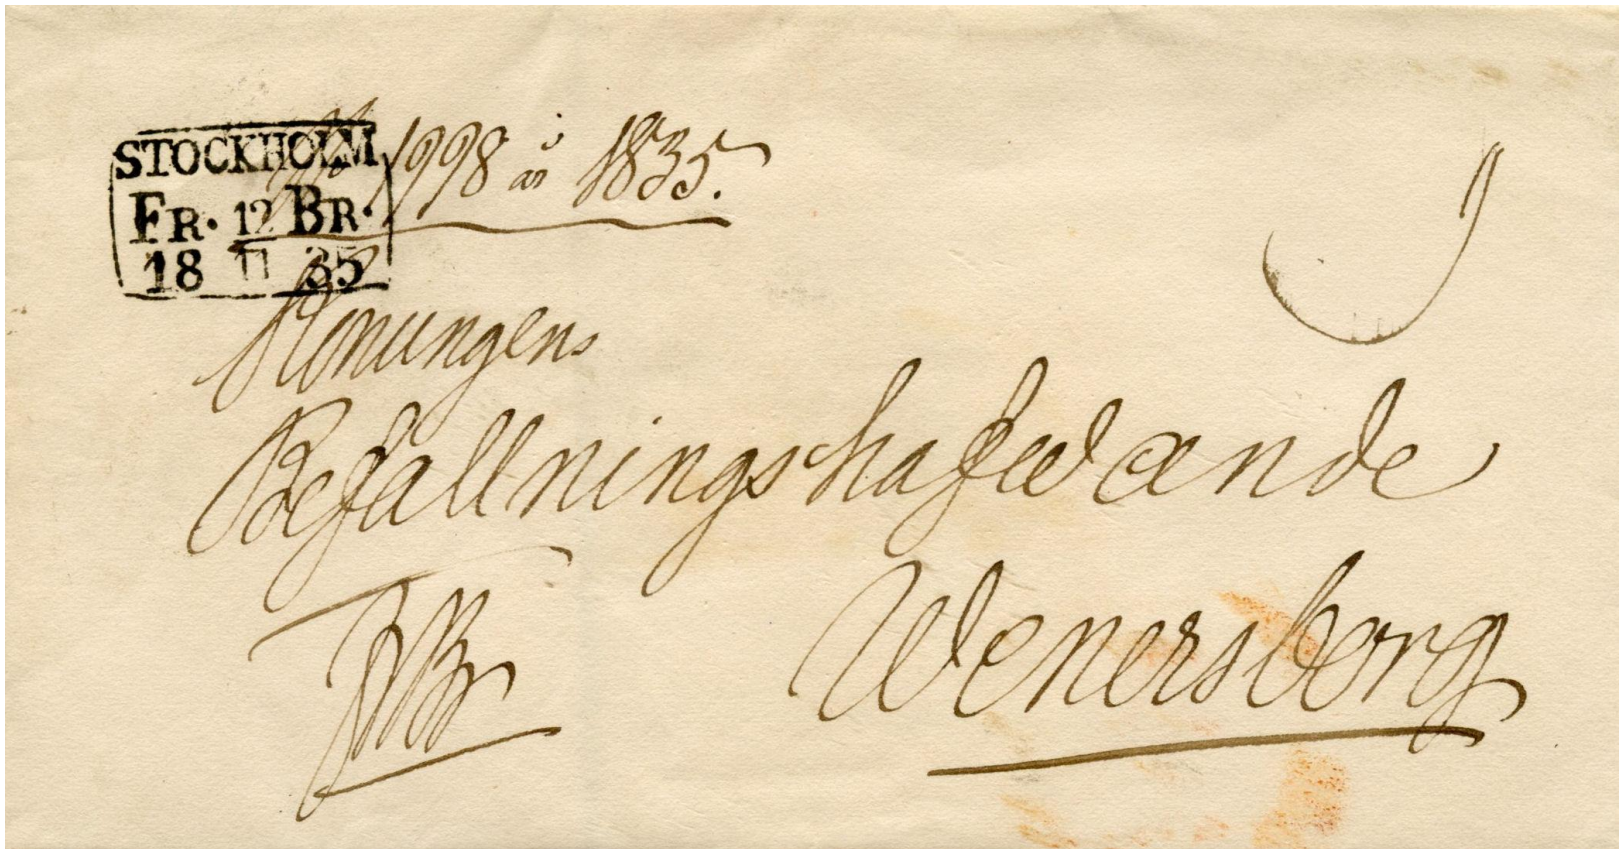 STOCKHOLM
FR. 12 BR.
18 11 35
No 1998 år 1835.
Konungens
Befallningshafwande
Wenersborg